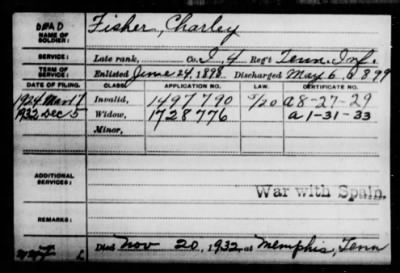 DEAD
NAME OF SOLDIER: Fisher, Charley
SERVICE: Late rank, Co. I, 4 Reg't Tenn. Inf.
TERM OF SERVICE: Enlisted June 24, 1898 Discharged May 6, 1899
DATE OF FILING. CLASS. APPLICATION NO. LAW. CERTIFICATE NO.
1924 Mar 17 Invalid, 1497790 A 8-27-29
1932 Dec 5 Widow, 1728776 A 1-31-33
Minor,
ADDITIONAL SERVICES:
War with Spain.
REMARKS:
Died Nov 20, 1932, at Memphis, Tenn